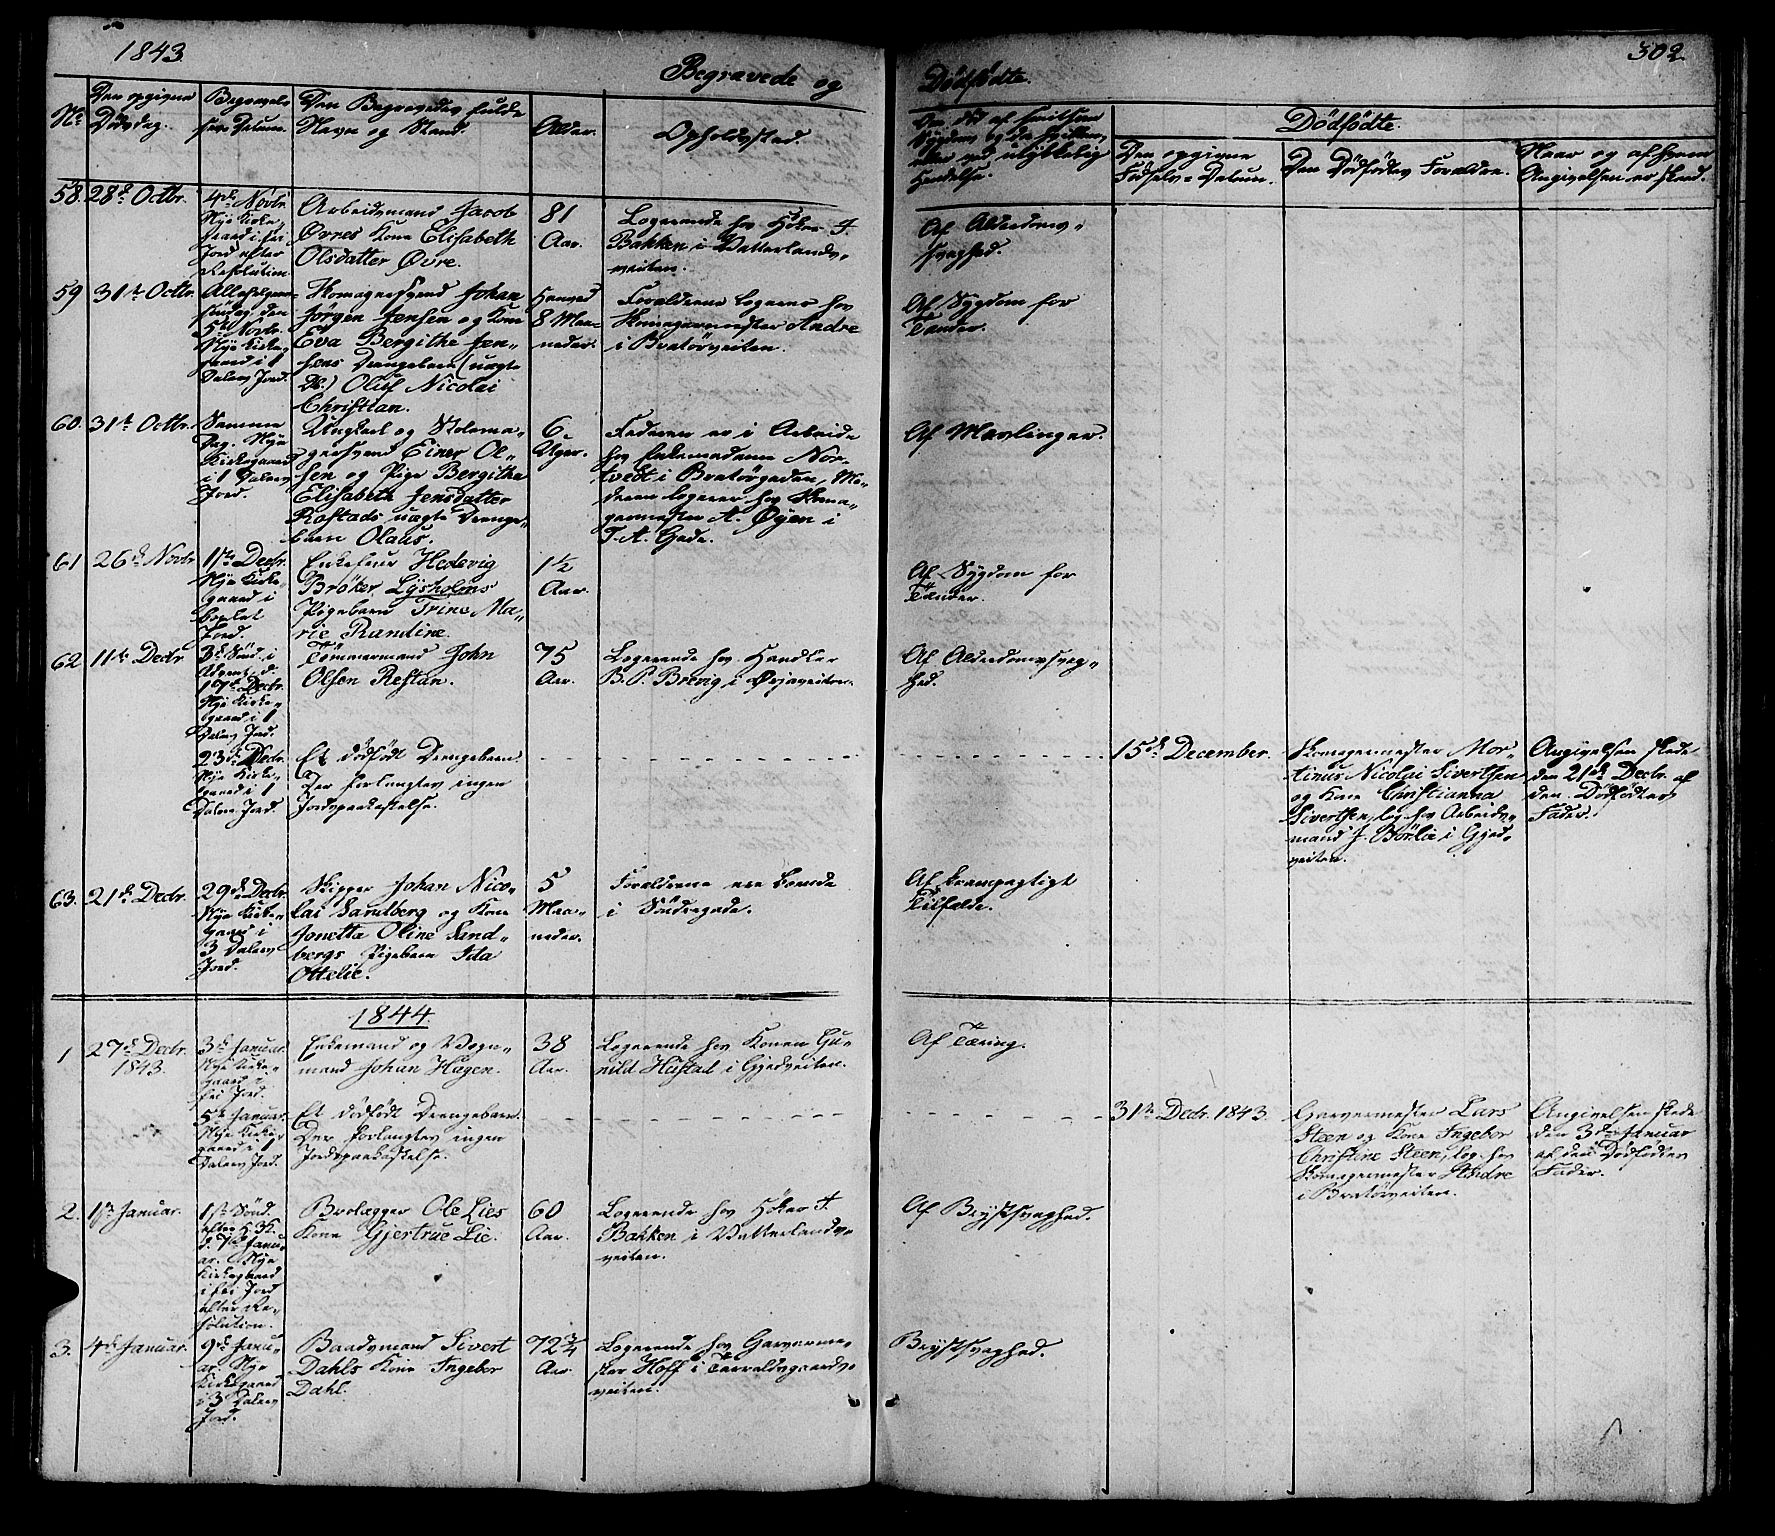 1843.
Begravede og
Dødfødte.
302.
No
Den opgivne
Dødsdag.
Begravel-
sens Datum.
Den Begravedes fulde
Navn og Stand.
Alder.
Opholdssted.
Om Død af smitsom
Sygdom og da hvilken,
eller ved ulykkelig
Hendelse.
Dødfødte.
Den opgivne
Fødsels-Datum.
Den Dødfødtes Forældre.
Naar og af hvem
Angivelsen er skeed.
58.
28de Octbr.
4de Novbr.
Nye Kirke-
gaard i fri
Jord efter
Resolution.
Arbeidsmand Jacob
Øvres Kone Elisabeth
Olsdatter Øvre.
81
Aar.
Logerende hos Høker F.
Bakken i Vatterlands-
veiten.
Af Alderdoms-
svaghed.
59
31te Octbr.
Allehelgens-
søndag den
5te Novbr.
Nye Kirke-
gaard i 1
Dalers Jord.
Skomagersvend Johan
Jørgen Jensen og Kone
Eva Bergithe Jen-
sens Drengebarn (uægte
Oluf Nicolai
Christian.
8 Maa-
neder.
Forældrene logerer hos
Skomagermester Andre
i Bratørveiten.
Af Sygdom for
Tænder.
60.
31te Octbr.
Samme
Dag. Nye
Kirkegaard
i 1 Dalers
Jord.
Ungkarl og Stolema-
gersvend Einer Ol-
sen og Pige Bergitha
Elisabeth Jensdatter
Rostads uægte Drenge-
barn Olaus.
6
Uger.
Faderen er i Arbeide
hos Enkemadame Nor-
tvedt i Bratørgaden, Mo-
deren logerer hos Skoma-
germester A. Øyen i
T. A. Gade.
Af Mæslinger.
61
26de Novbr
1ste Decbr.
Nye Kirke-
gaard i
Jord.
Enkefrue Hedevig
Brøker Lysholms
Pigebarn Trine Ma-
rie Randine.
1½
Aar.
Af Sygdom for
Tænder.
62
11te Decbr
3de Sønd. i
Advent d.
17de Decbr.
Nye Kirke-
gaard i 1
Dalers Jord.
Tømmermand John
Olsen Restan.
75
Aar.
Logerende hos Handler
B. P. Brevig i Ørjaveiten.
Af Alderdomssvag-
hed.
23de Decbr.
Nye Kirke-
gaard i 1
Dalers Jord.
Et dødfødt Drengebarn.
Der forlangtes ingen
Jordspaakastelse.
15de December.
Skomagermester Mor-
tinus Nicolai Sivertsen
og Kone Christianna
Sivertsen, log. hos Arbeids-
mand J. Børlie i Gjed-
veiten.
Angivelsen skede
den 21de Decbr. af
den Dødfødtes
Fader.
63.
21de Decbr.
29de Decbr.
Nye Kirke-
gaard i
3 Dalers
Jord.
Skipper Johan Nico-
lai Sandberg og Kone
Jonetta Oline Sand-
bergs Pigebarn Ida
Ottelie.
5
Maa-
neder.
Forældrene ere boende
i Søndregade.
Af krampagtigt
Tilfælde.
1844.
1
27de Decbr.
1843.
3de Januar.
Nye Kirke-
gaard i
fri Jord.
Enkemand og Vogn-
mand Johan Hagen.
38
Aar.
Logerende hos Konen Gu-
nild Hustad i Gjedveiten.
Af Tæring.
5te Januar.
Nye Kirke-
gaard i 1
Dalers Jord.
Et dødfødt Drengebarn.
Der forlangtes ingen
Jordspaakastelse.
31te Decbr. 1843.
Garvermester Lars
Steen og Kone Ingebor
Christine Steen, log. hos
Skomagermester Andre
i Bratørveiten.
Angivelsen skede
den 3de Januar
af den Dødfødtes
Fader.
2.
1ste Januar.
1ste Sønd.
efter H. 3 K.
d. 7de Janu-
ar. Nye
Kirkegaard
i fri Jord
efter Re-
solution.
Brolægger Ole Lies
Kone Gjertrue Lie.
60
Aar.
Logerende hos Høker F.
Bakken i Vatterlands-
veiten.
Af Brystsvaghed.
3.
4de Januar.
9de Janu-
ar. Nye
Kirkegaard
i 3 Dalers
Jord.
Baadsmand Sivert
Dahls Kone Ingebor
Dahl.
72 3/4
Aar.
Logerende hos Garverme-
ster Hoff i Tarraldsgaards-
veiten.
Brystsvaghed.